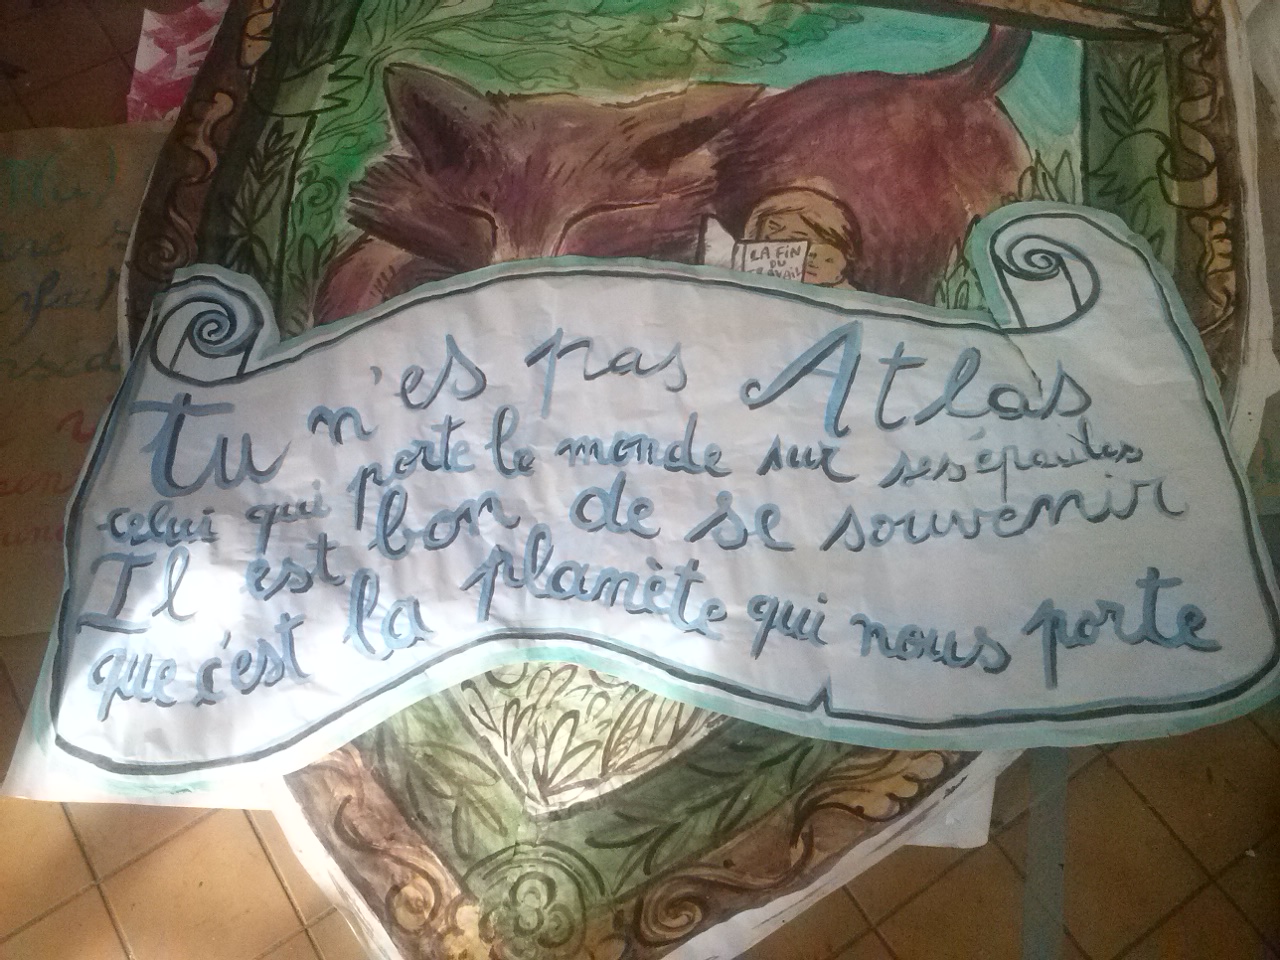 LA FIN
DU
TRAVAIL
Tu n'es pas Atlas
celui qui porte le monde sur ses épaules
Il est bon de se souvenir
que c'est la planète qui nous porte